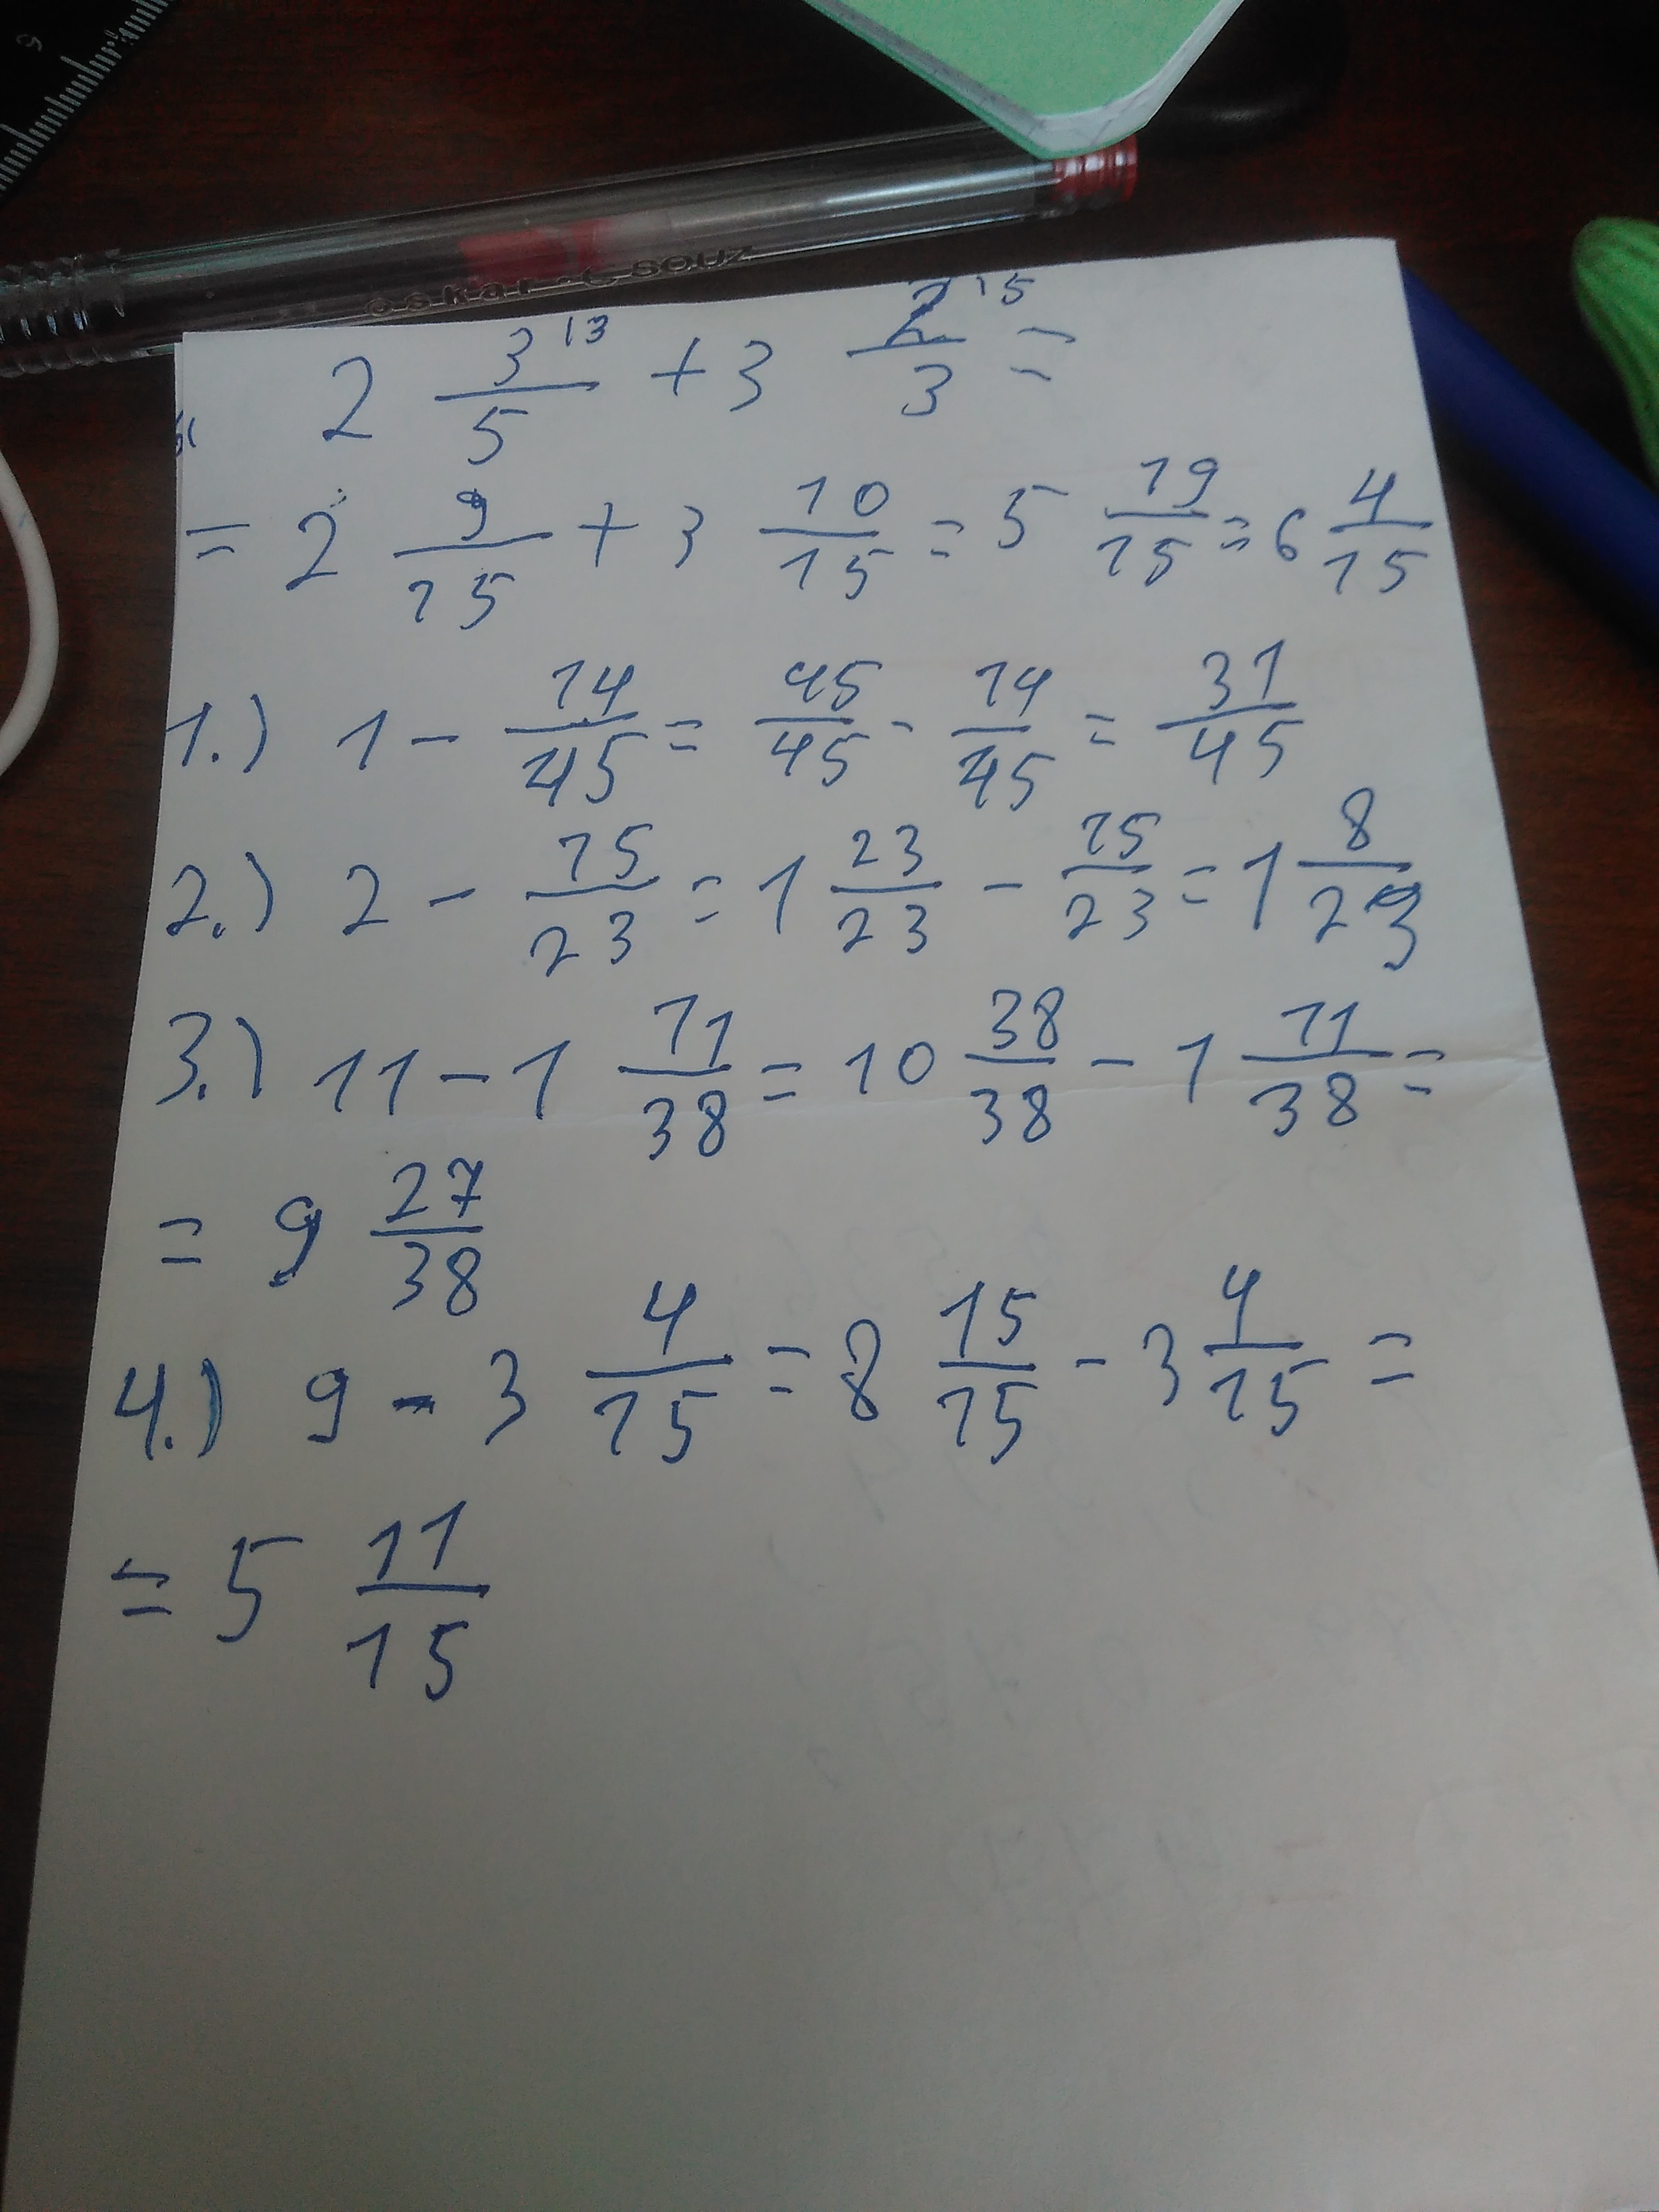 oskar-L souz
2 3/5 ^(\3) + 3 2/3 ^(\5) =
= 2 9/15 + 3 10/15 = 5 19/15 = 6 4/15
1.) 1 - 14/45 = 45/45 - 14/45 = 31/45
2.) 2 - 15/23 = 1 23/23 - 15/23 = 1 8/23
3.) 11 - 1 11/38 = 10 38/38 - 1 11/38 =
= 9 27/38
4.) 9 - 3 4/15 = 8 15/15 - 3 4/15 =
= 5 11/15